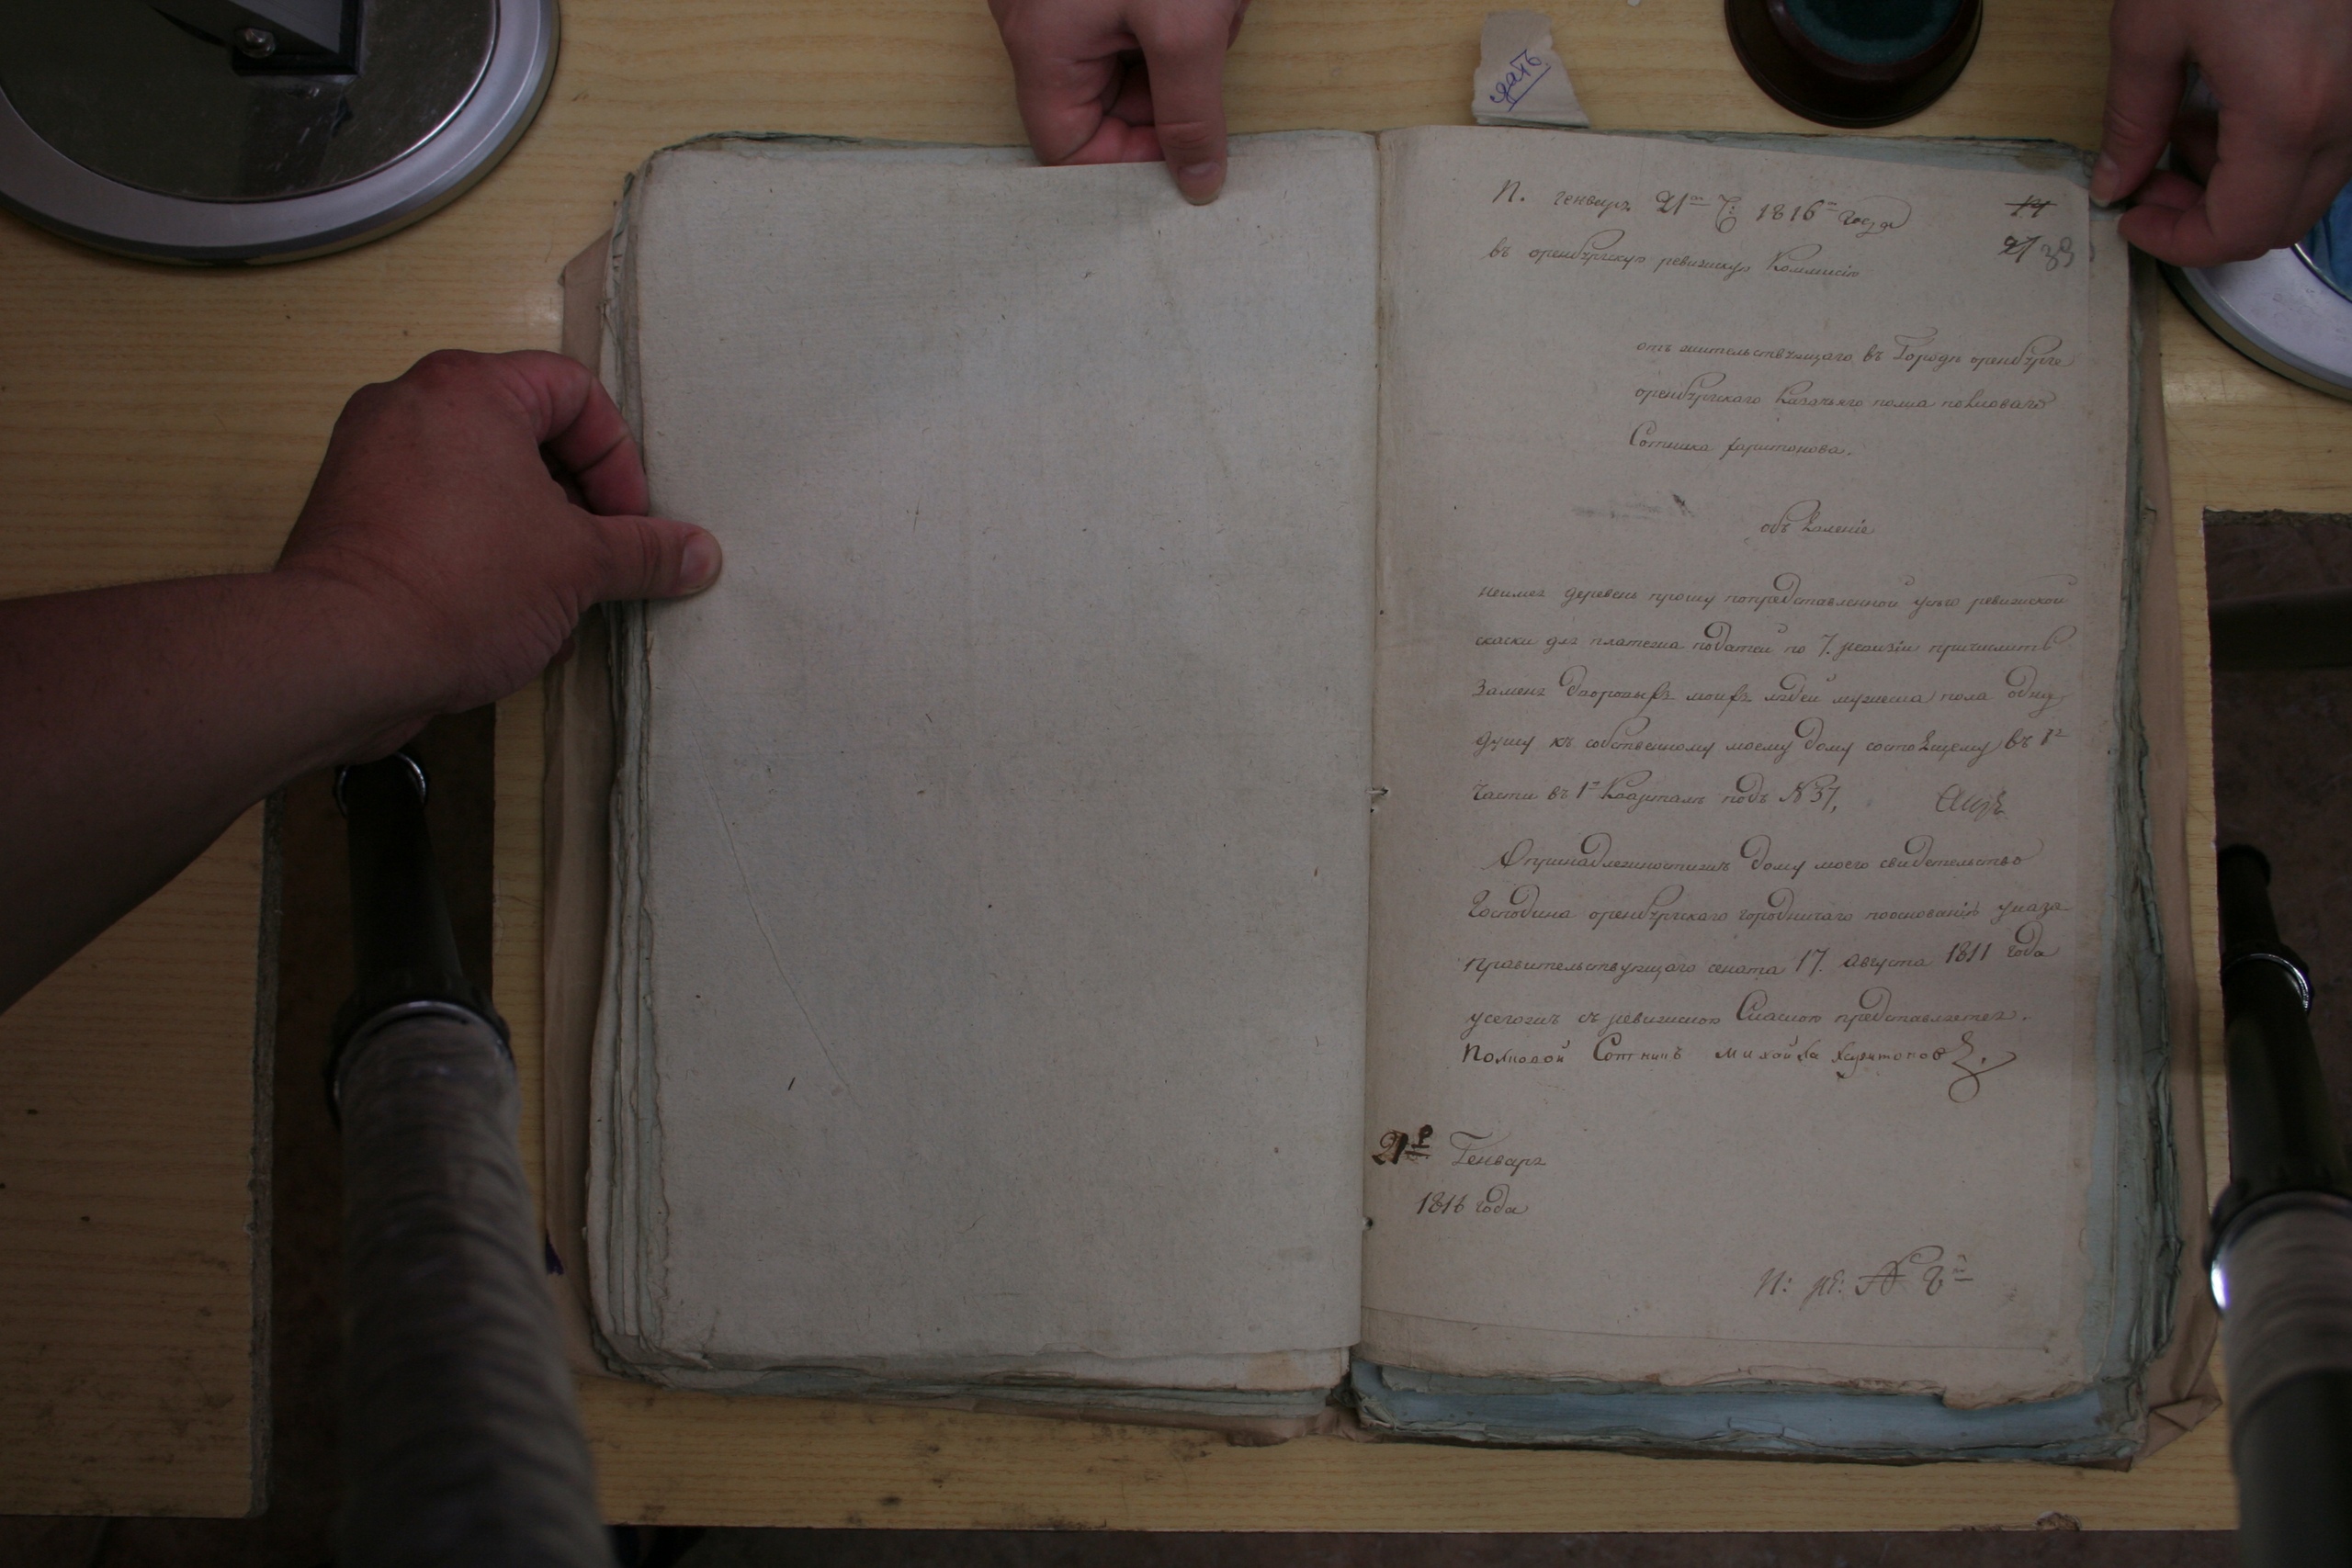 дать
П. генваря 21го Ч: 1816го года
14
27 39
въ оренбургскую ревижскую Коммисію
отъ жительствующаго въ Городѣ оренбурге
оренбургскаго казачьяго полка полковаго
Сотника харитонова.
объявленіе
неимея деревень прошу попредставленной усего ревижской
скаски для платежа податей по 7. ревизіи причислить
заменя дворовыхъ моихъ людей мужеска пола одну
душу къ собственному моему дому состоящему въ 1й
части въ 1м Кварталѣ подъ №37,
Опринадлежностижъ дому моего свидетельство
Господина оренбургскаго городничаго пооснованію указа
правительствующаго сената 17. августа 1811 года
усегожъ съ ревижскою Скаскою представляется.
Полковой Сотникъ михайла харитоновъ.
21го Генваря
1816 года